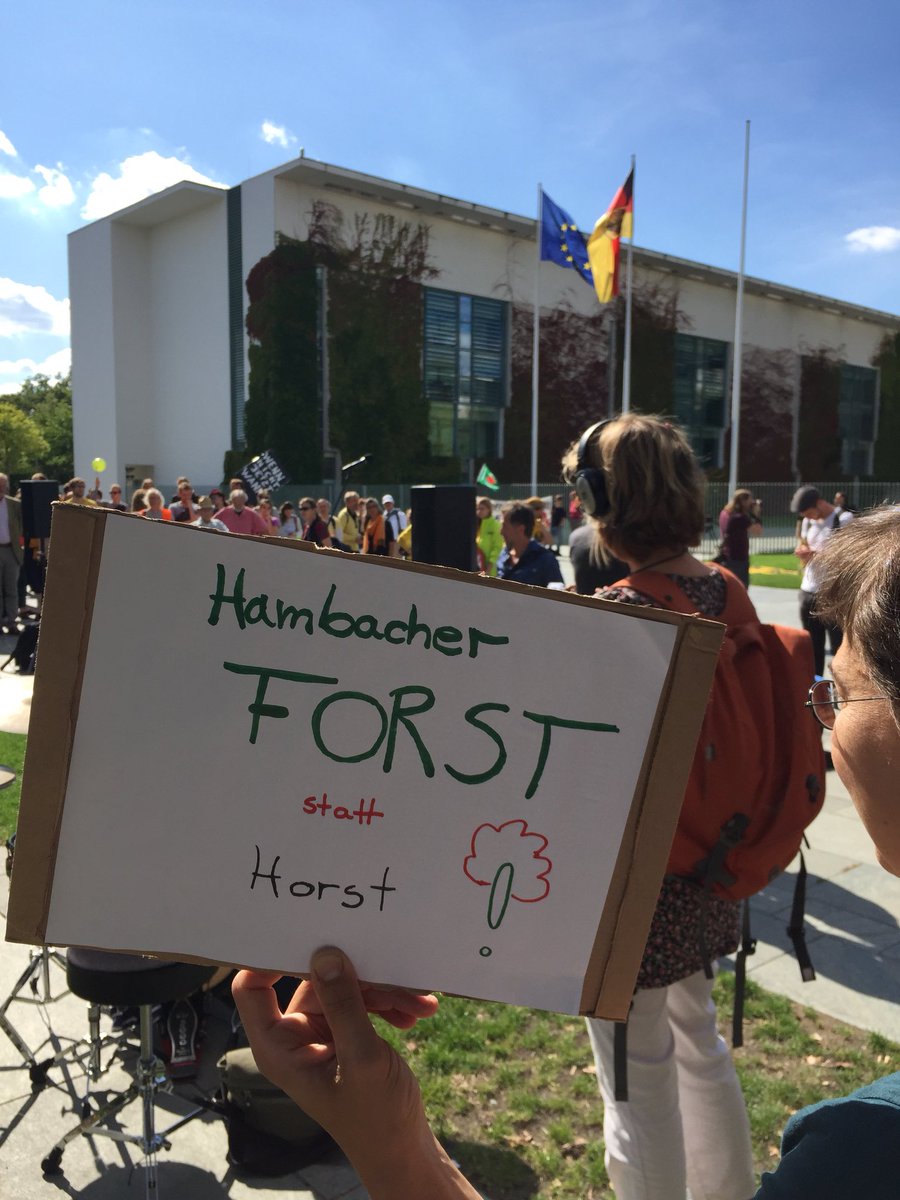 Hambacher
FORST
statt
Horst